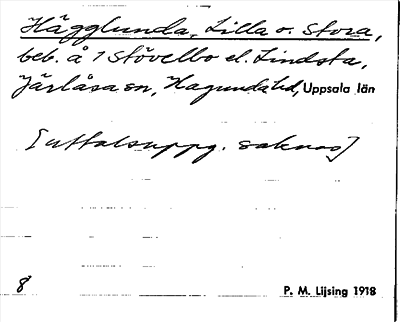 Hägglunda, Lilla o. Stora,
beb. å 1 Stövelbo el. Lindsta,
Järlåsa sn, Hagunda hd, Uppsala län
[uttalsuppg. saknas]
8 P. M. Lijsing 1918